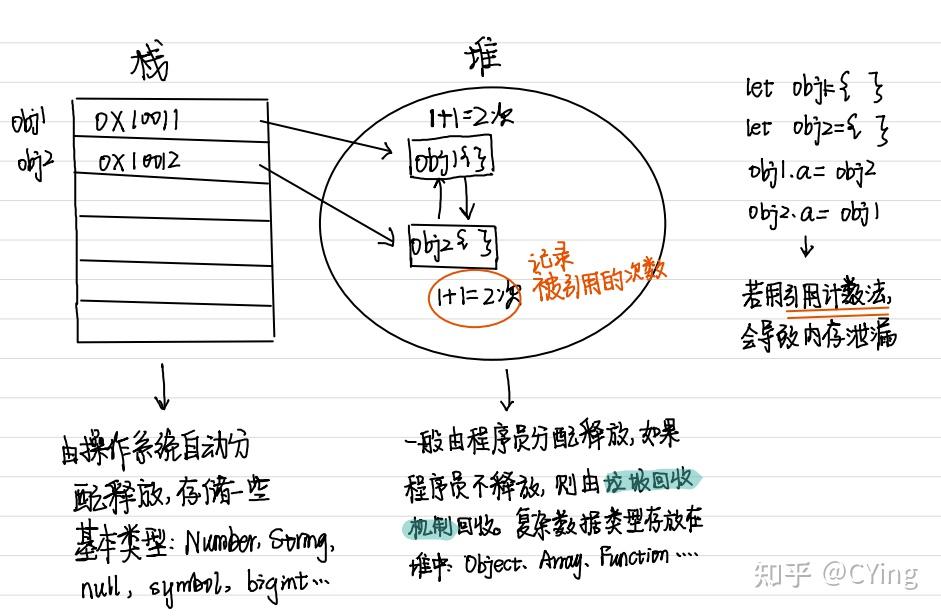 栈
obj1
0X10011
obj2
0X10012
由操作系统自动分
配释放,存储一些
基本类型:Number,String,
null, symbol, bigint...
堆
1+1=2次
obj1{ }
obj2{ }
1+1=2次
记录
被引用的次数
一般由程序员分配释放,如果
程序员不释放,则由垃圾回收
机制回收。复杂数据类型存放在
堆中:Object、Array、Function....
let obj1={ }
let obj2={ }
obj1.a= obj2
obj2.a= obj1
若用引用计数法,
会导致内存泄漏
知乎 @CYing